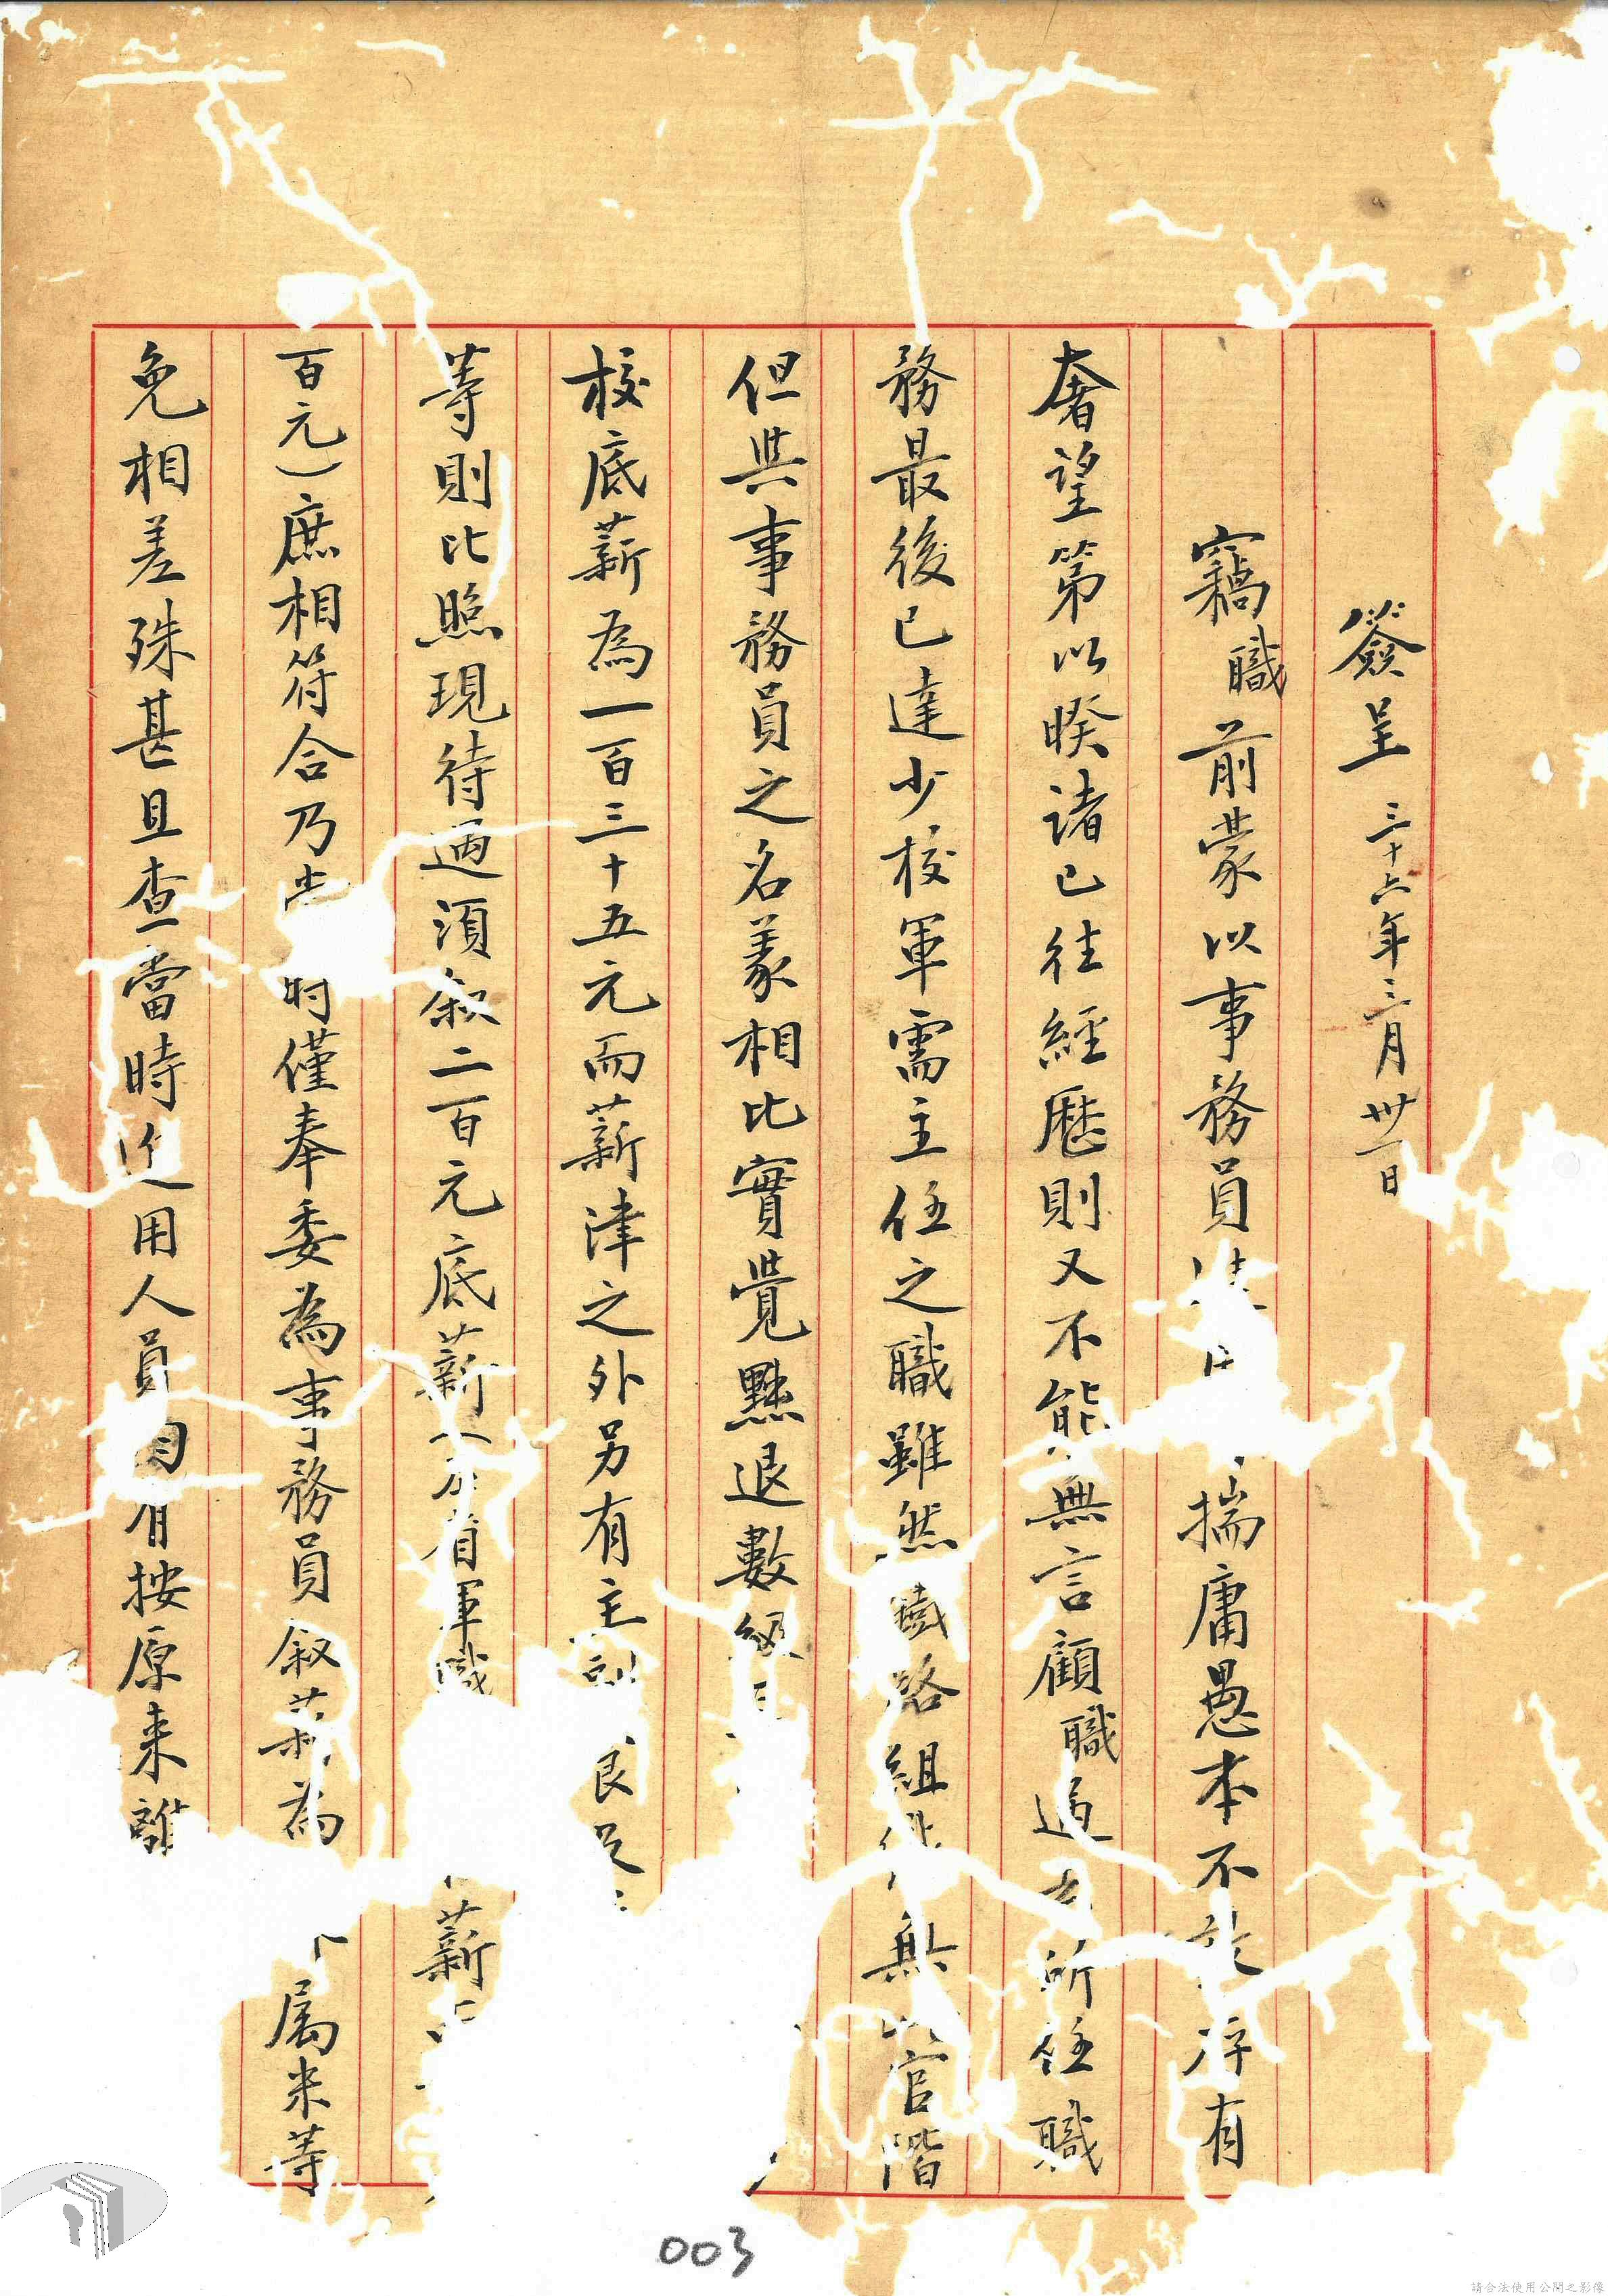 簽呈 三十六年三月卅一日
竊職前蒙以事務員 揣庸愚本不 有
奢望第以暌諸已往經歷則又不能無言顧職過去所任職
務最後已達少校軍需主任之職雖然鐵路組織無 官階
但與事務員之名義相比實覺黜退數級
校底薪為一百三十五元而薪津之外另有主副
等則比照現待遇須敘二百元底薪 軍職 薪
百元)庶相符合乃 時僅奉委為事務員敘薪為 屬來等
免相差殊甚且查當時進用人員 有按原來
003
請合法使用公開之影像